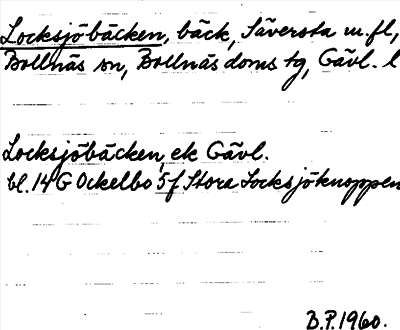 Locksjöbäcken, bäck, Säversta m.fl,
Bollnäs sn, Bollnäs doms tg, Gävl. l
Locksjöbäcken, ek Gävl.
bl. 14 G Ockelbo 5f Stora Locksjöknoppen
B.P. 1960.